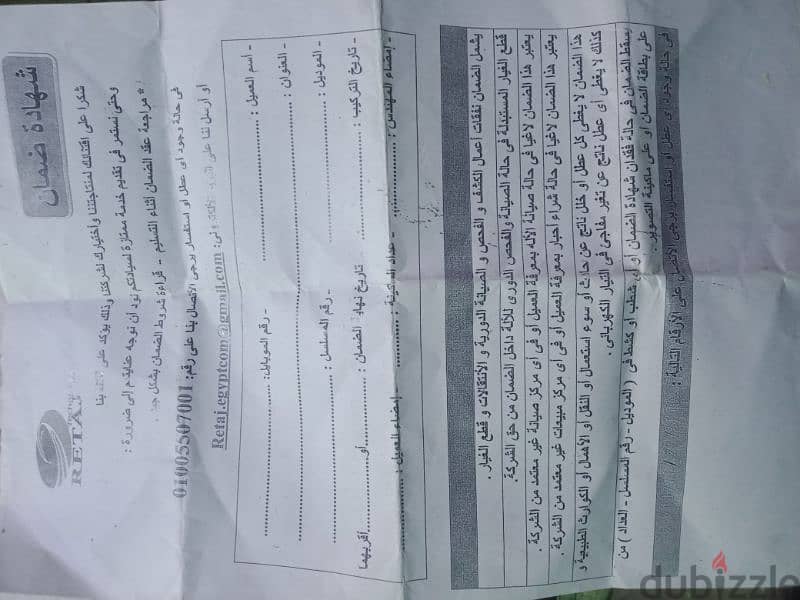 RETAJ
شهادة ضمان
شكرا على اقتنائك لمنتاجتنا واختيارك لشركتنا وذلك يؤكد على بنا
وحتى نستمر فى تقديم خدمة ممتازة لسيادتكم نود ان نوجه عنايتكم الى ضرورة :
* مراجعة عقد الضمان اثناء التسليم - قراءة شروط الضمان بشكل
فى حالة وجود اى عطل او استفسار يرجى الأتصال بنا على رقم: 01005507001
او ارسل لنا على
Retaj.egyptcom@gmail.com
- اسم العميل :
- رقم الموبايل:
- العنوان :
- الموديل :
- رقم المسلسل :
- تاريخ التركيب :
تاريخ نهاية الضمان : او أقربهما
- إمضاء المهندس :
- عداد الماكينة :
- إمضاء العميل :
يشمل الضمان نفقات أعمال الكشف و الفحص و الصيانة الدورية و الأنتقالات و قطع الغيار .
قطع الغيار المستبدلة فى حالة الصيانة والفحص الدورى للألة داخل الضمان من حق الشركة.
يعتبر هذا الضمان لاغيا فى حالة صيانة الأله بمعرفة العميل او فى اى مركز صيانة غير معتمد من الشركة .
يعتبر هذا الضمان لاغيا فى حالة شراء احبار بمعرفة العميل او فى اى مركز مبيعات غير معتمد من الشركة .
هذا الضمان لا يغطى كل عطل او خلل ناتج عن حادث او سوء استعمال أو النقل او الأهمال او الكوارث الطبيعية و
كذلك لا يغطى اى عطل ناتج عن تغير مفاجئ فى التيار الكهربائى .
يسقط الضمان فى حالة فقدان شهادة الضمان او اى شطب او كشط فى ( الموديل - رقم المسلسل - العداد ) من
على بطاقة الضمان او على ماكينة التصوير .
فى حالة وجود اى عطل او استفسار يرجى الأتصال على الأرقام التالية :
dubizzle